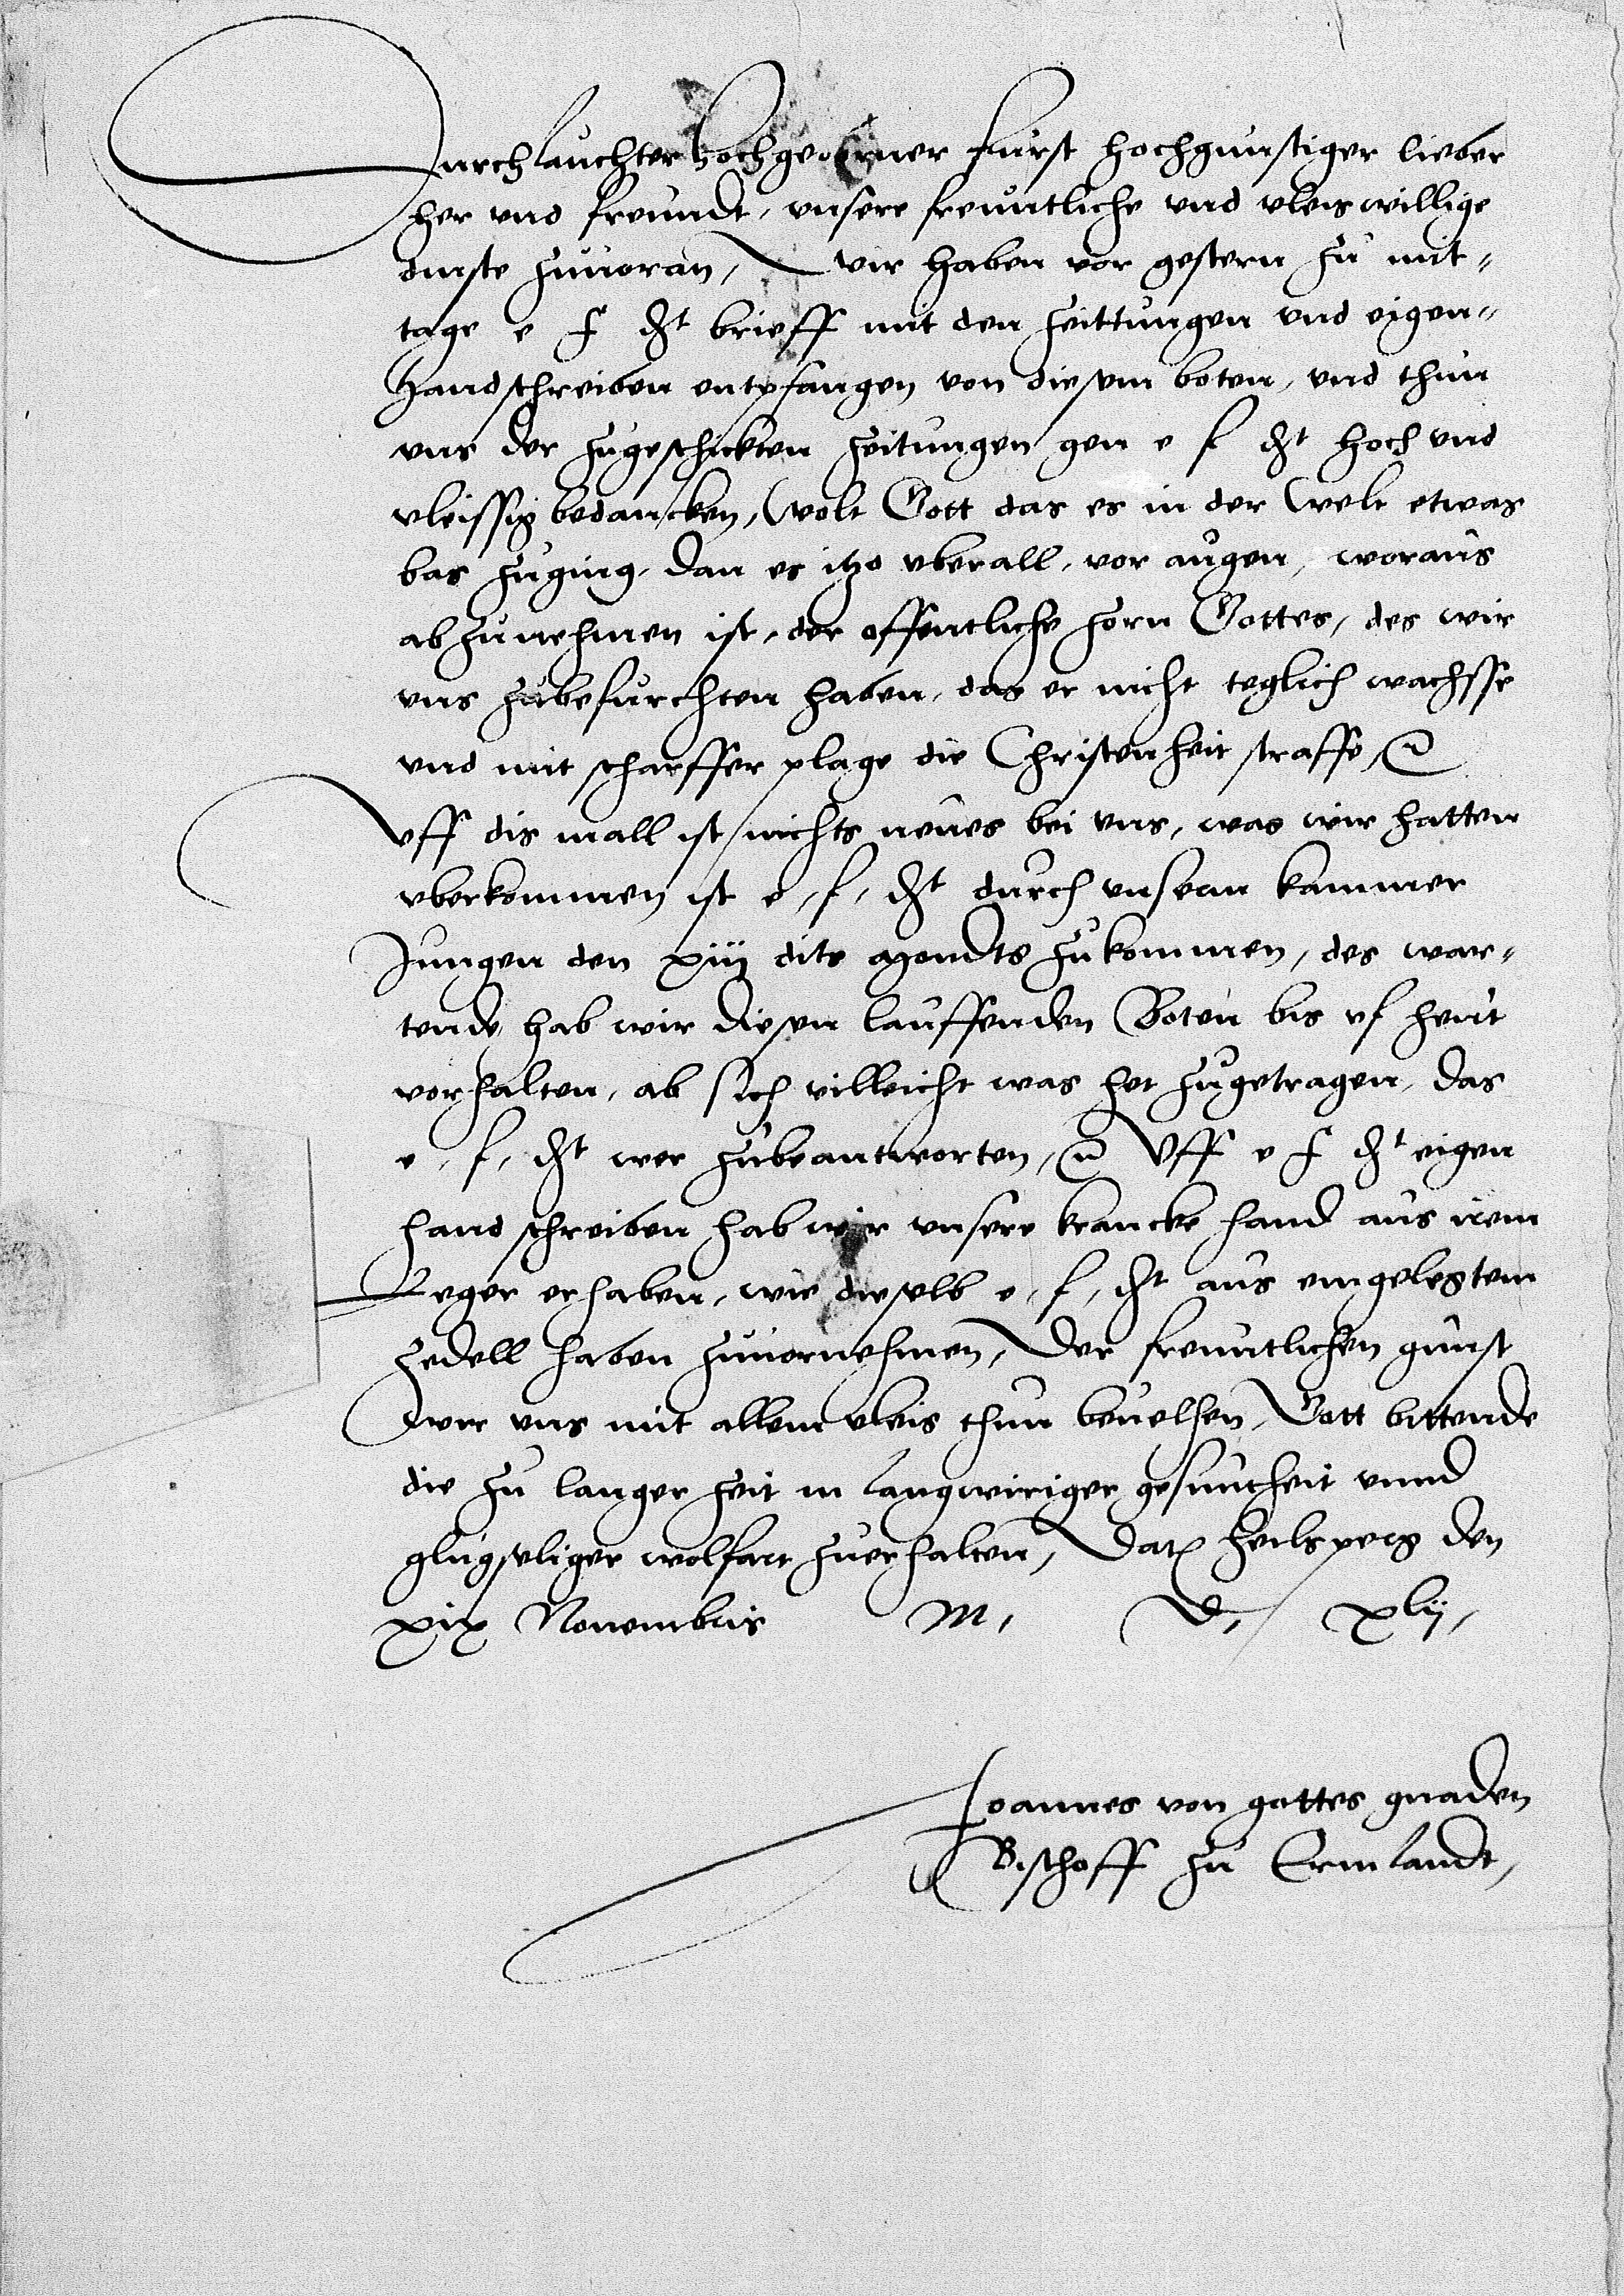 Durchlauchter hochgeborner furst hochgunstiger lieber
her vnd freundt, vnsere freuntliche vnd vleis willige
dinste zuuoran, wir haben vor gestern zu mit-
tage e f dt brieff mit den zeittungen vnd eigen-
handschreiben entpfangen von diesem boten, vnd thun
vns der zugeschickten zeitungen gen e f dt hoch vnd
vleissig bedancken, Wolt Gott das es in der welt etwas
bas zuging, dan es itzo vberall, vor augen, woraus
abzunehmen ist, der offentliche zorn Gottes, des wir
vns zubefurchten haben, das er nicht teglich wachsse
vnd mit scharffer plage die Christenheit straffe, etc
Vff dis mall ist nichts neues bei vns, was wir hatten
vberkommen ist e, f, dt durch vnsern kammer
Jungen den xiij dits mondts zukommen, des war-
tende hab wir diesen lauffenden Boten bis vf heut
vorhalten, ab sich villeicht was het zugetragen, das
e, f, dt wer zubeantworten, etc Vff e f dt eigen
handschreiben hab wir vnsere krancke hand aus irem
Leger erhaben, wie dieselb e, f, dt aus eingelegtem
zedell haben zuuornehmen, Der freuntlichen gunst
wir vns mit allem vleis thun beuelhen, Gott bittende
die zu langer zeit in langwiriger gesuntheit vnnd
glugseliger wolfart zuerhalten, Dat heilsperg den
xix Nouembris M, D, xlij,
Joannes von gottes gnaden
Bischoff zu Ermlandt,